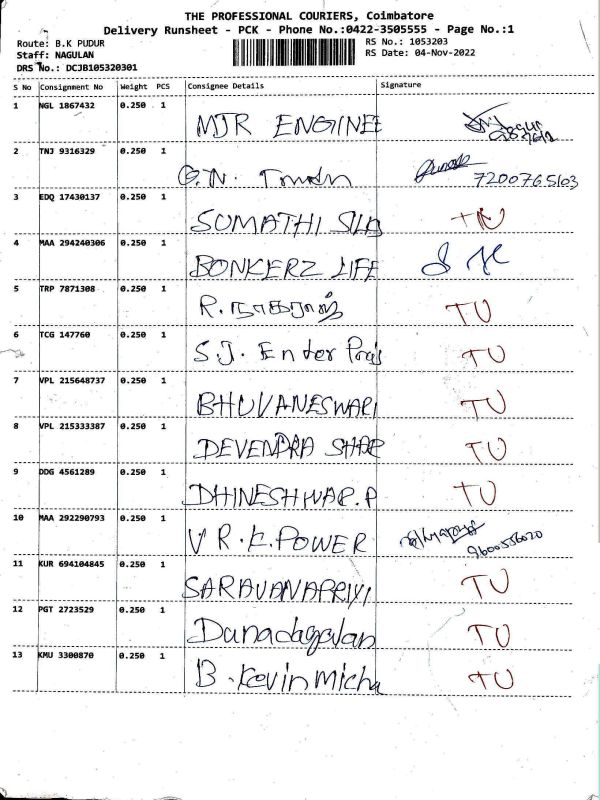 THE PROFESSIONAL COURIERS, Coimbatore
Delivery Runsheet - PCK - Phone No.:0422-3505555 - Page No.:1
Route: B.K PUDUR RS No.: 1053203
Staff: NAGULAN RS Date: 04-Nov-2022
DRS No.: DCJB105320301
S No Consignment No Weight PCS Consignee Details Signature
1 NGL 1867432 0.250 1 MJR ENGINEE
2 TNJ 9316329 0.250 1 G.N. 7200765103
3 EDQ 17430137 0.250 1 SUMATHI SILA TU
4 MAA 294240306 0.250 1 BONKERZ LIFE
5 TRP 7871308 0.250 1 R. நாகராஜ் TU
6 TCG 147760 0.250 1 S.J. Enter Prais TU
7 VPL 215648737 0.250 1 BHUVANESWARI TU
8 VPL 215333387 0.250 1 DEVENDRA SHAR TU
9 DDG 4561289 0.250 1 DHINESHWAR.P TU
10 MAA 292290793 0.250 1 V R.K.POWER 9600556020
11 KUR 694104845 0.250 1 SARAVANAPRIYI TU
12 PGT 2723529 0.250 1 TU
13 KMU 3300870 0.250 1 B.Kevin Micha TU